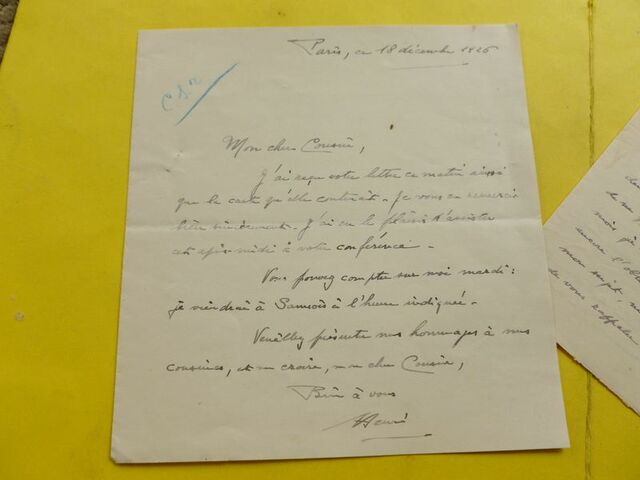 Paris, ce 18 décembre 1926
Mon cher Cousin,
J'ai reçu votre lettre ce matin ainsi
que la carte qu'elle contenait. Je vous en remercie
bien sincèrement. J'ai eu le plaisir d'assister
cet après-midi à votre conférence.
Vous pouvez compter sur moi mardi :
je viendrai à Samois à l'heure indiquée.
Veuillez présenter mes hommages à mes
cousines, et me croire, mon cher Cousin,
Bien à vous
Henri
de vous rappeler